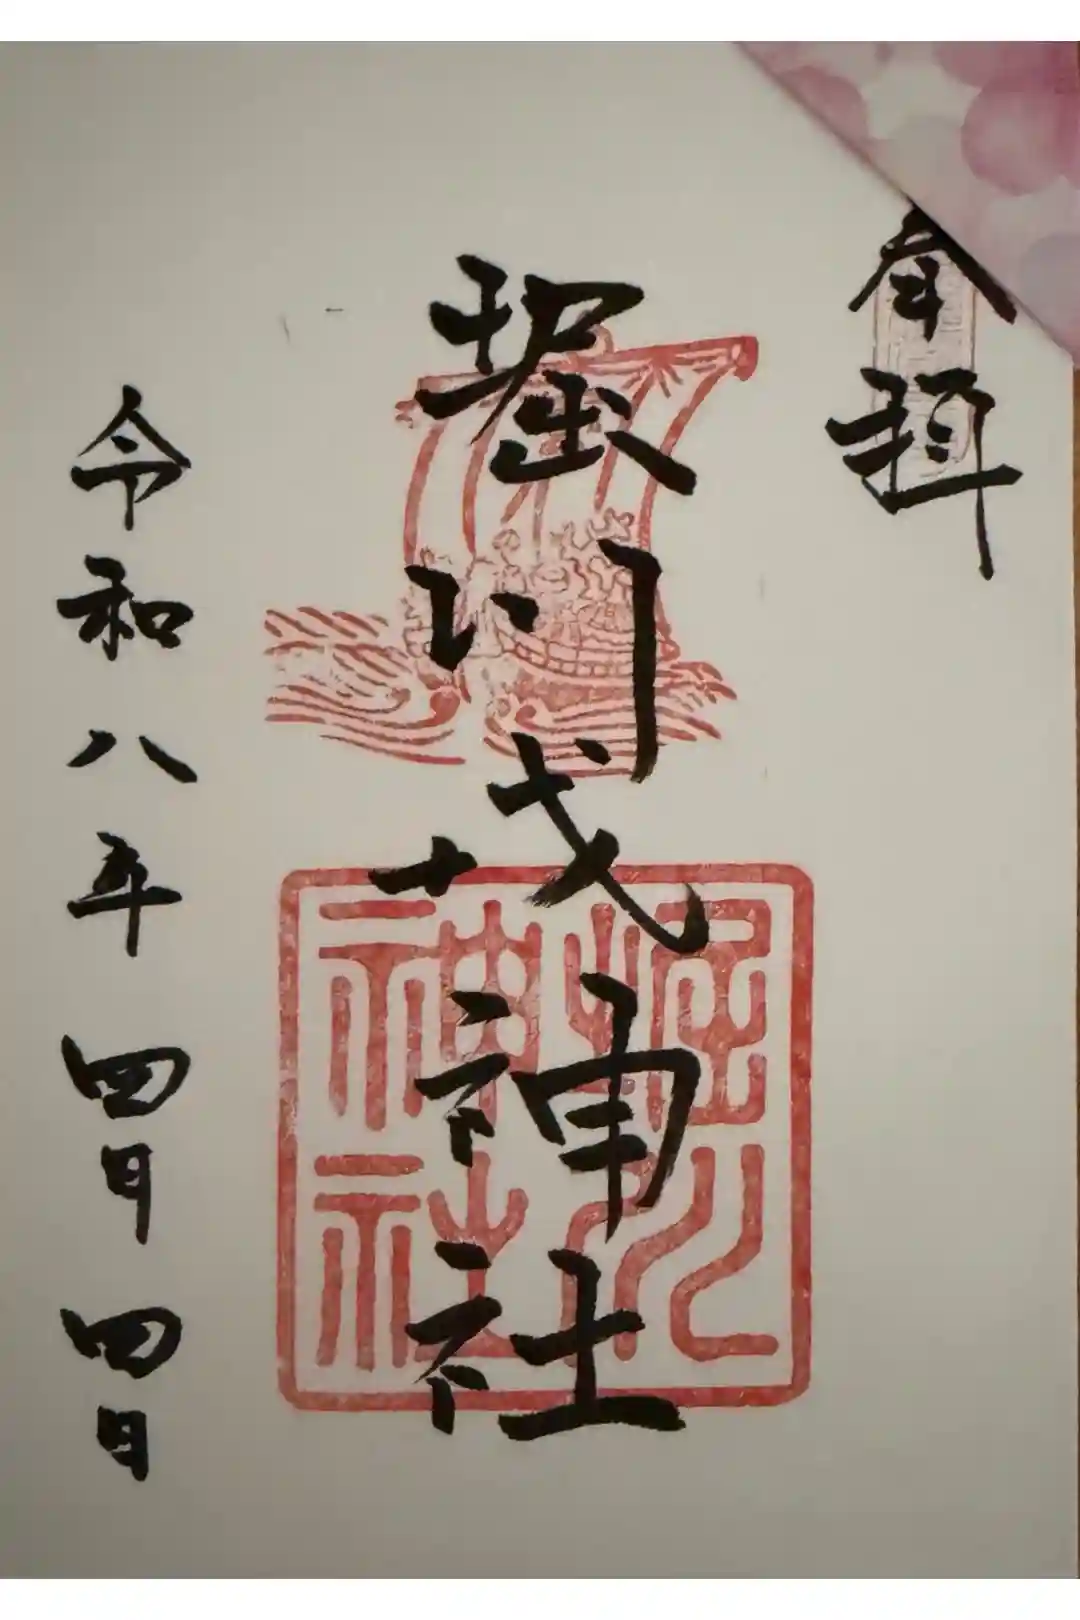 奉拝
堀川戎神社
令和八年四月四日
堀川
神社